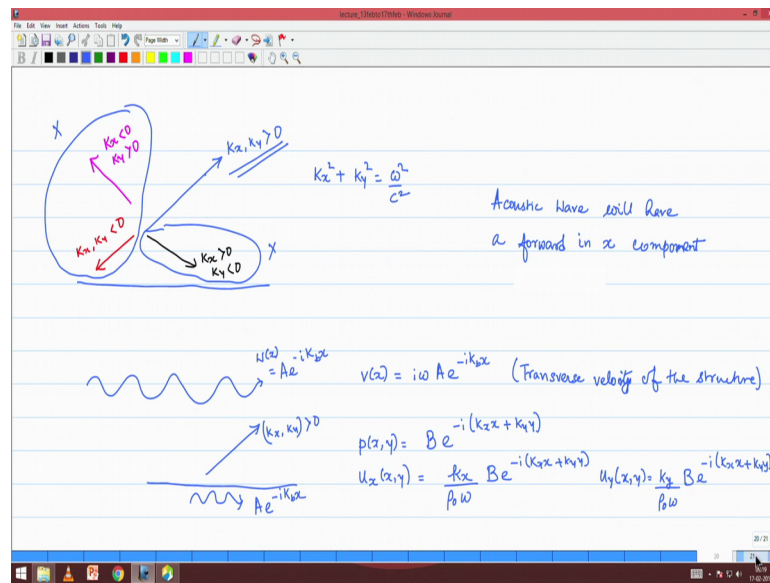 lecture_13febto17thfeb - Windows Journal
File Edit View Insert Actions Tools Help
Page Width
B I
X
Kx<0
Ky>0
Kx, Ky >0
Kx² + Ky² = ω²/c²
Acoustic Wave will have
a forward in x component
Kx, Ky <0
Kx>0
Ky<0
X
W(x)
= Ae^{-iK_b x}
v(x) = iω Ae^{-iK_b x} (Transverse velocity of the structure)
(Kx, Ky) >0
p(x,y) = Be^{-i(Kx x + Ky y)}
Ae^{-iK_b x}
u_x(x,y) = kx/ρ₀ω Be^{-i(Kx x + Ky y)} u_y(x,y) = ky/ρ₀ω Be^{-i(Kx x + Ky y)}
20 / 21
20 21